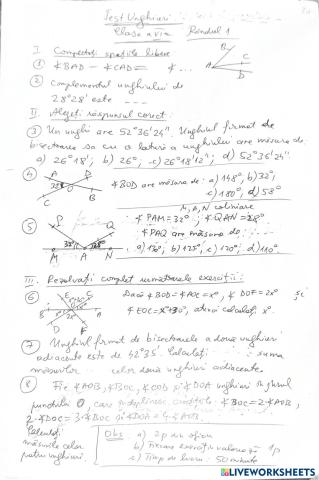 Test Unghiuri
Clasa a VI-a Rândul 1
I. Completați spațiile libere
① ∢BAD - ∢CAD = ∢ ...
B
C
A
D
② Complementul unghiului de
28°28' este ----
II. Alegeți răspunsul corect:
③ Un unghi are 52°36'24". Unghiul format de
bisectoarea sa cu o latură a unghiului are măsura de
a) 26°18'; b) 26°; c) 26°18'12"; d) 52°36'24"
④ A D 32° O C B ∢BOD are măsura de: a) 148°; b) 32°;
c) 180°; d) 58°
M, A, N coliniare
⑤ P Q 33° 28° M A N ∢PAM = 33°; ∢QAN = 28°
∢PAQ are măsura de:
a) 130°; b) 125°; c) 120°; d) 110°
III. Rezolvați complet următoarele exerciții:
⑥ Dacă ∢BOD = ∢AOC = x°, ∢DOF = 2x° și
∢EOC = x°+30°, atunci calculați x°.
⑦ Unghiul format de bisectoarele a două unghiuri
adiacente este de 42°35'. Calculați suma
măsurilor celor două unghiuri adiacente.
⑧ Fie ∢AOB, ∢BOC, ∢COD și ∢DOA unghiuri în jurul
punctului O, care îndeplinesc condițiile: ∢BOC = 2·∢AOB,
2·∢DOC = 3·∢BOC și ∢DOA = 4·∢AOB.
Calculați
măsurile celor
patru unghiuri.
Obs: a) 2p din oficiu
b) Fiecare exercițiu valorează 1p
c) Timp de lucru: 50 minute
LIVEWORKSHEETS